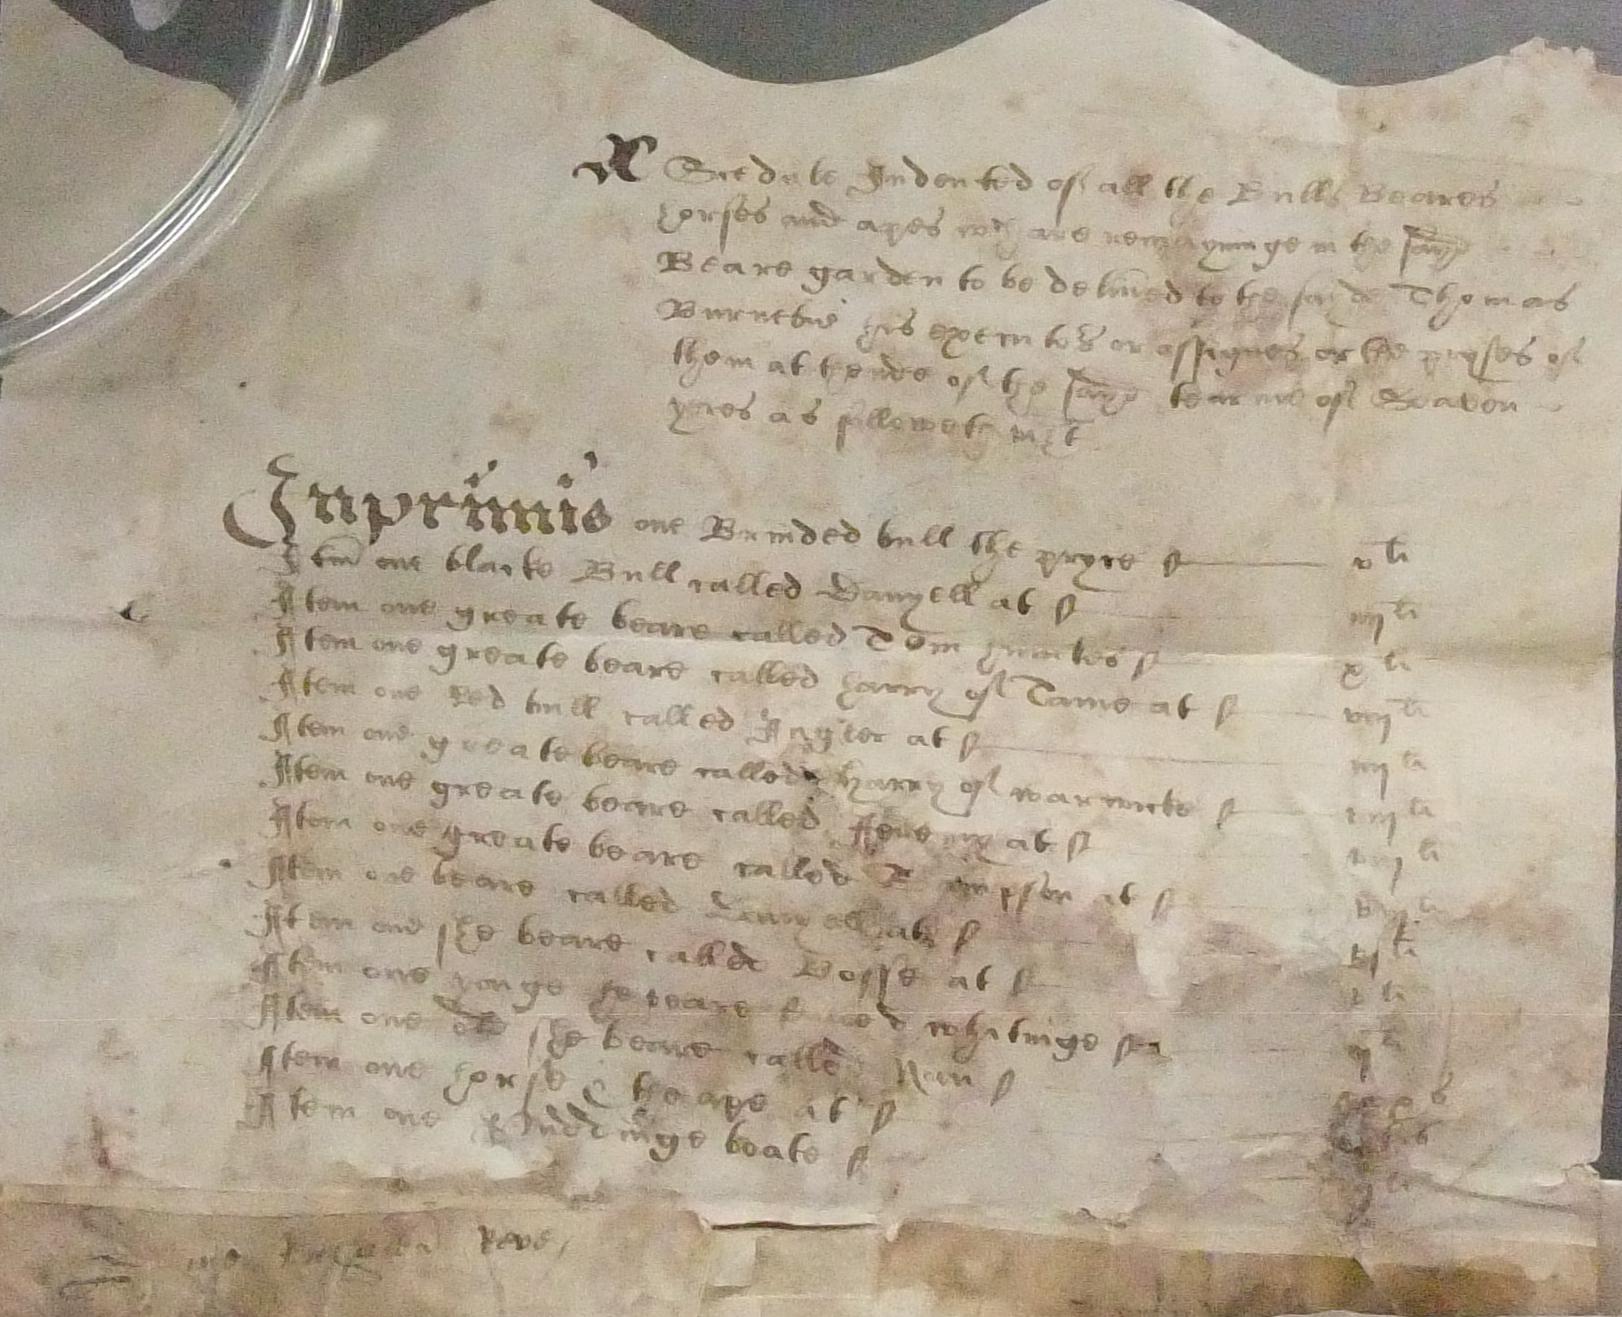 A Scedule Indented of all the Bulls Beares
horses and apes wch are remayninge in the sayd
Beare garden to be deliued to the sayde Thomas
Burnebie his executors or assignes or the pryses of
them at thende of the sayd tearme of Seaven
yeres as followeth vizt
Inprimis one Brinded bull the pryce
vli
Itm one blacke Bull called Danyell at
iiijli
Item one greate beare called Tom hunckes
xli
Item one greate beare called Harry of Tame at
viijli
Item one Red bull called Jugler at
iiijli
Item one greate beare called Harry of warwicke
viijli
Item one greate beare called at
viijli
Item one greate beare called at
Item one beare called Danyell at
Item one she beare called Bosse at
Item one yonge he beare whitinge
Item one old she beare called Nan
Item one horse & the ape at
Item one Puddinge boate
me Reve